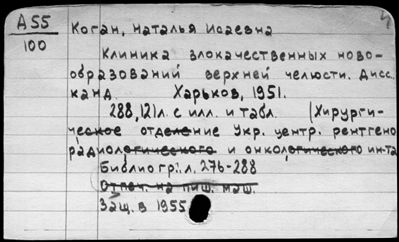 А55
100
Коган, Наталья Исаевна
Клиника злокачественных ново-
образований верхней челюсти. Дисс.
канд. Харьков, 1951.
288,12)л. с илл. и табл. (Хирурги-
ческое отделение Укр. центр. рентгено
радиологического и онкологического ин-та
Библиогр.: л. 276-288
Отпеч. на пиш. маш.
Защ. в 1955